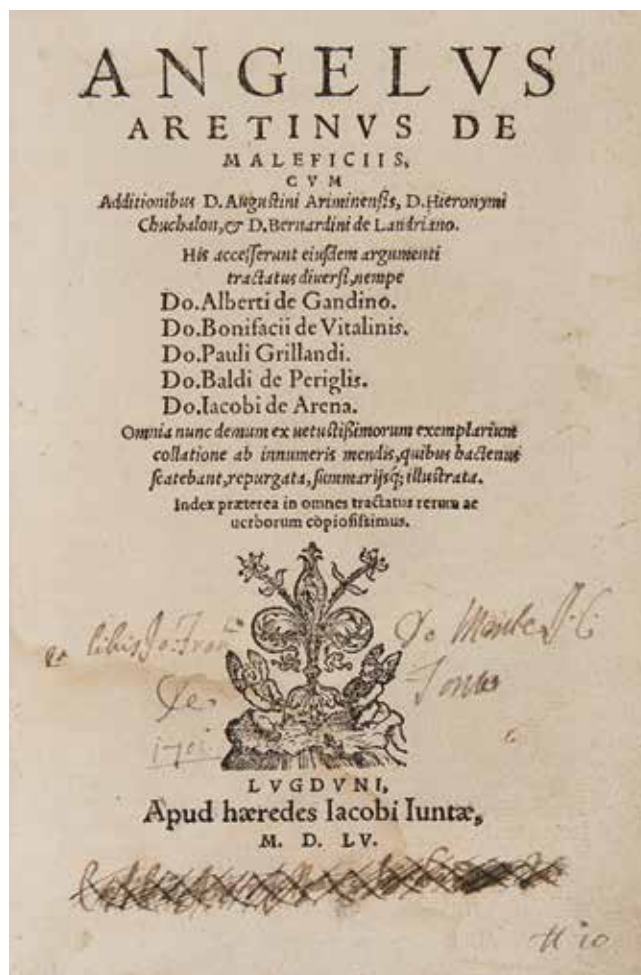 ANGELVS
ARETINVS DE
MALEFICIIS,
CVM
Additionibus D. Augustini Ariminensis, D. Hieronymi
Chuchalon, & D. Bernardini de Landriano.
His accesserunt eiusdem argumenti
tractatus diuersi, nempe
Do. Alberti de Gandino.
Do. Bonifacii de Vitalinis.
Do. Pauli Grillandi.
Do. Baldi de Periglis.
Do. Iacobi de Arena.
Omnia nunc demum ex uetustißimorum exemplarium
collatione ab innumeris mendis, quibus hactenus
scatebant, repurgata, summarijsq; illustrata.
Index præterea in omnes tractatus rerum ac
uerborum copiosissimus.
libis Jo: Fran De Monte J. C.
De
LVGDVNI,
Apud hæredes Iacobi Iuntæ,
M. D. LV.